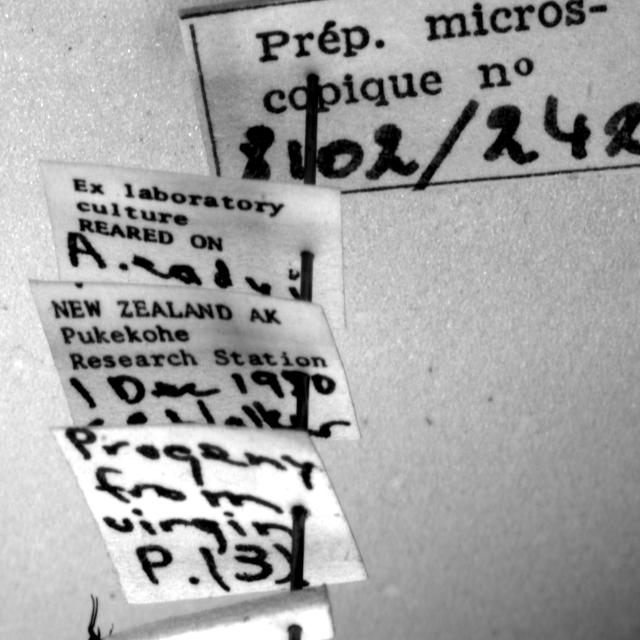 Prép. micros-
copique nº
8102/242
Ex laboratory
culture
REARED ON
A.
NEW ZEALAND AK
Pukekohe
Research Station
1 Dec 1980
Progeny
from
virgin
P. (3)